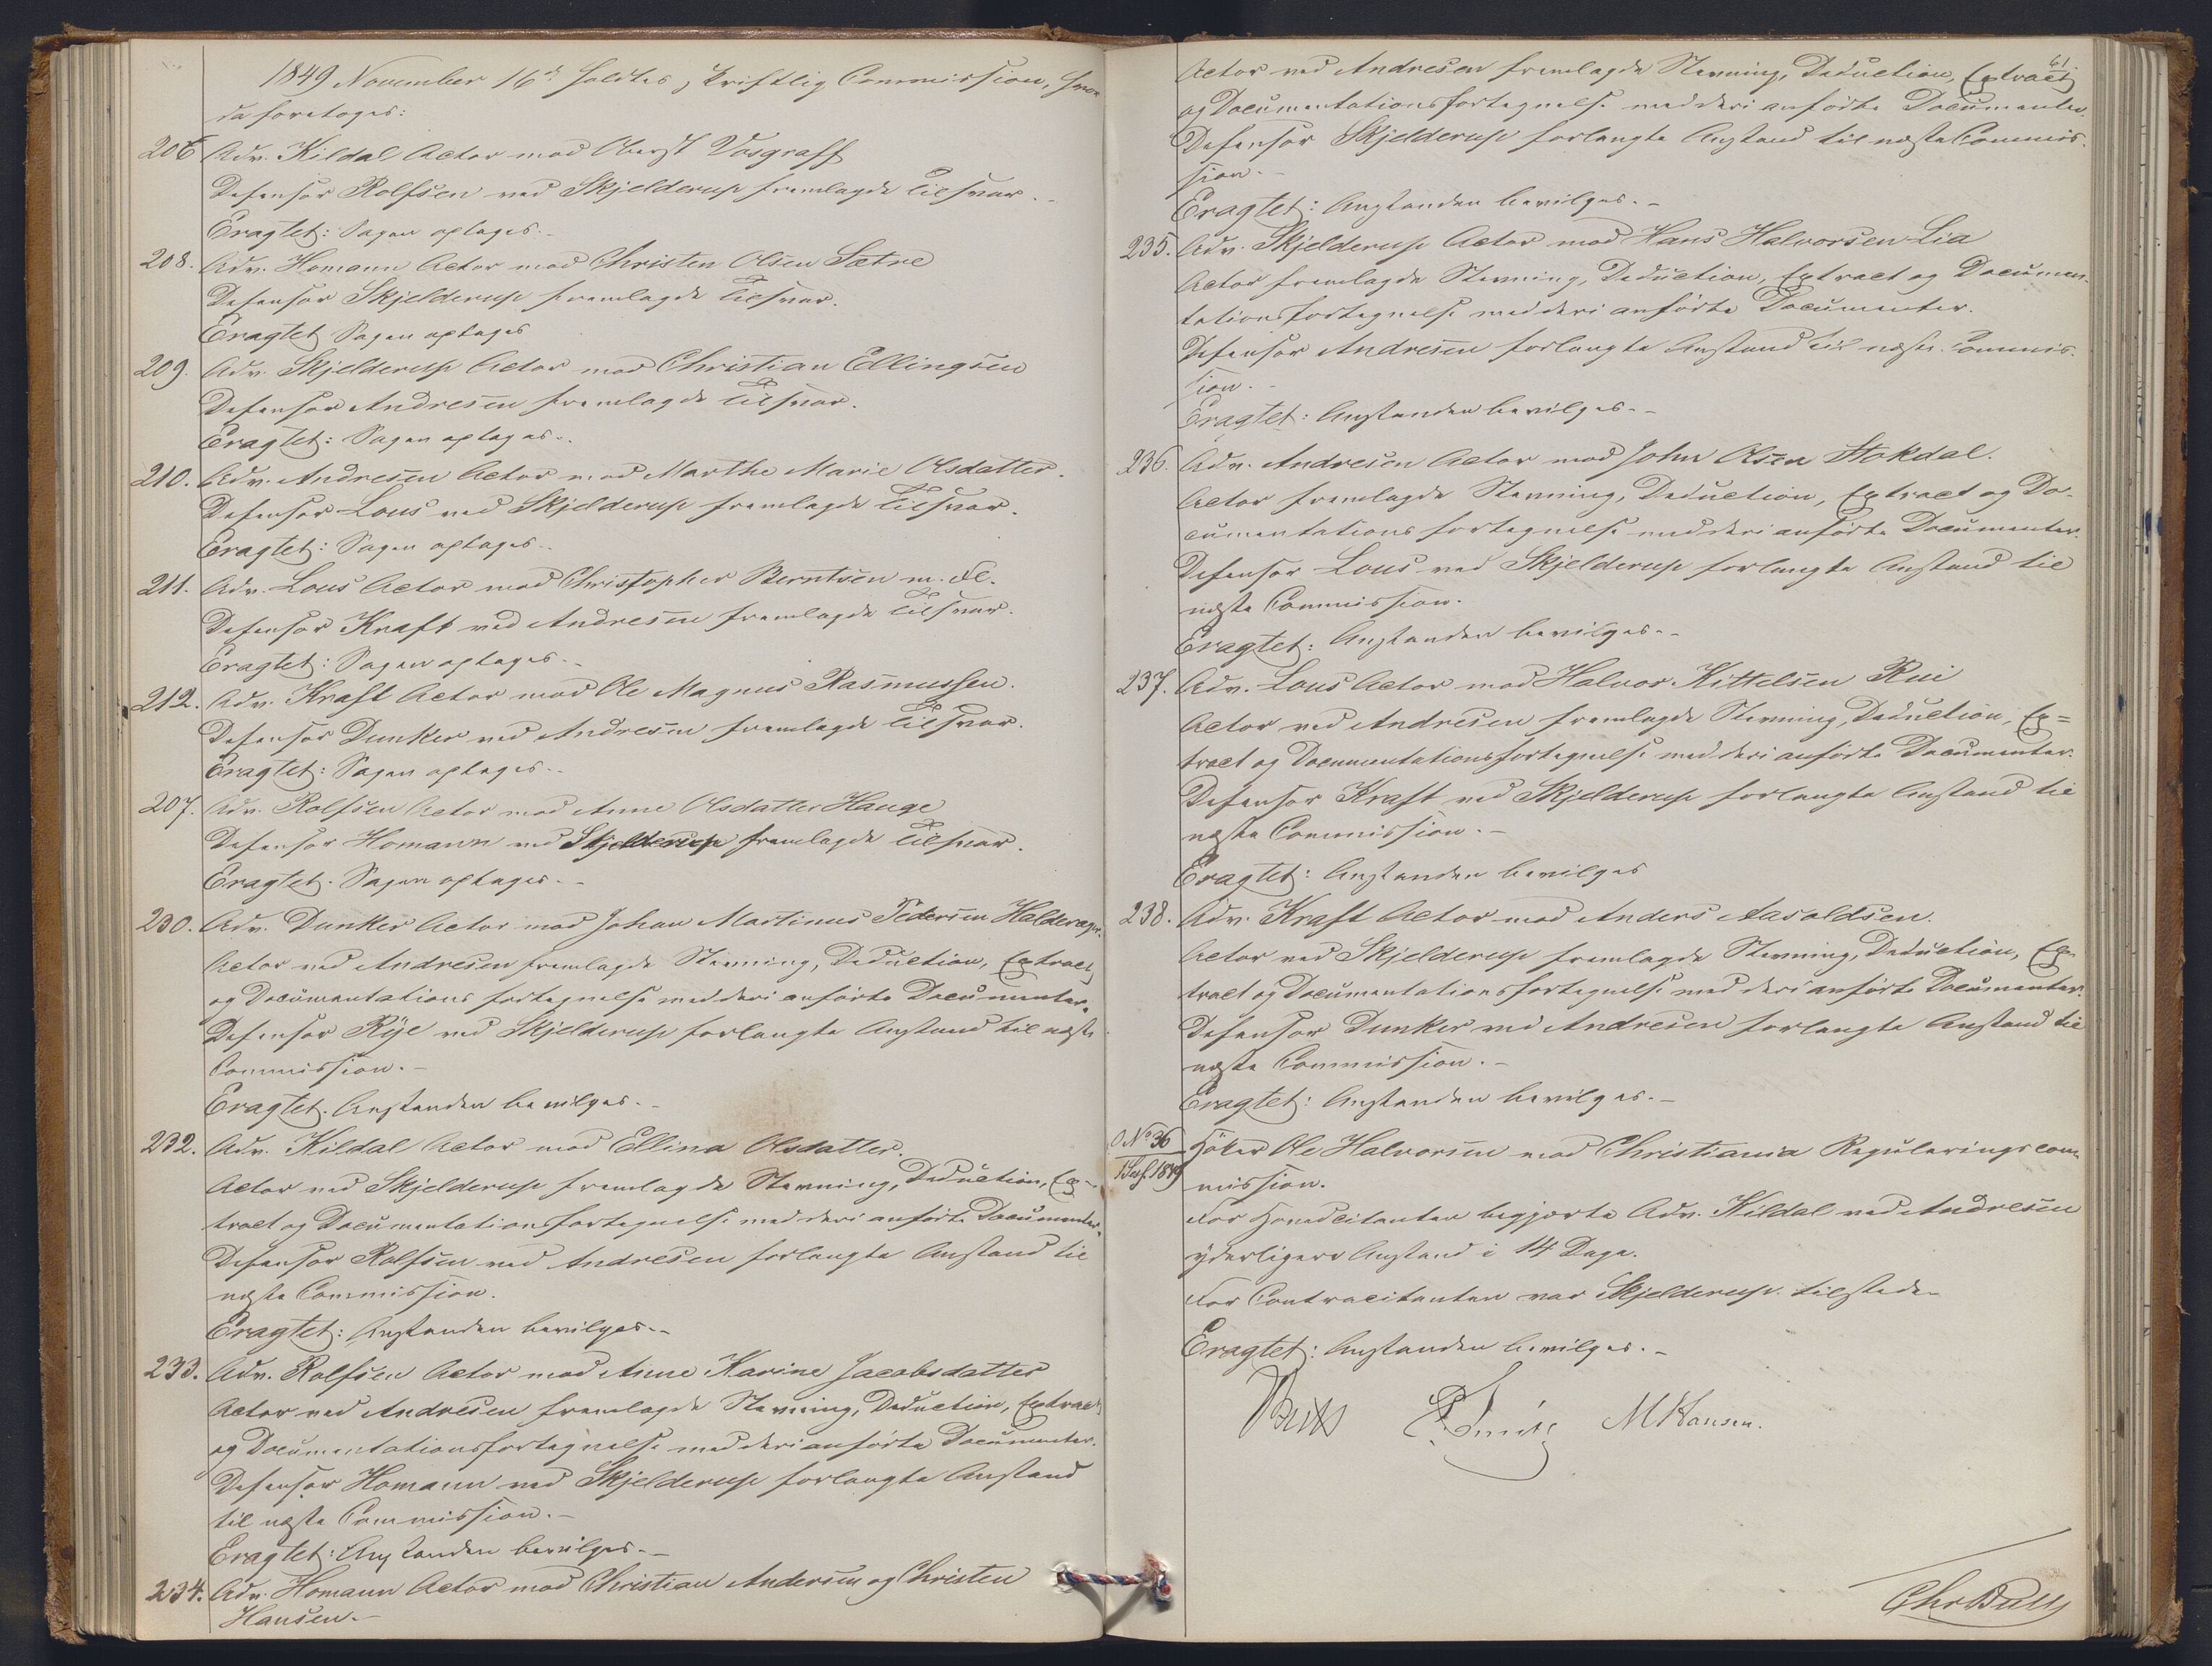 1849 November 16de holdtes skriftlig Commission, hvor
da foretoges:
206 Adv. Kildal Actor mod Oberst Vosgraff
Defensor Rolfsen ved Skjelderup fremlagde Tilsvar.
Eragtet: Sagen optages.
208. Adv. Homann Actor mod Christen Olsen Sætre
Defensor Skjelderup fremlagde Tilsvar.
Eragtet Sagen optages
209. Adv. Skjelderup Actor mod Christian Ellingsen
Defensor Andresen fremlagde Tilsvar.
Eragtet: Sagen optages.
210. Adv. Andresen Actor mod Marthe Marie Olsdatter.
Defensor Lous ved Skjelderup fremlagde Tilsvar.
Eragtet: Sagen optages.
211. Adv. Lous Actor mod Christopher Berntsen m. Fl.
Defensor Kraft ved Andresen fremlagde Tilsvar.
Eragtet: Sagen optages.
212. Adv. Kraft Actor mod Ole Magnus Rasmussen.
Defensor Dunker ved Andresen fremlagde Tilsvar.
Eragtet: Sagen optages.
207. Adv. Rolfsen Actor mod Anne Olsdatter Hauge
Defensor Homann ved Skjelderup fremlagde Tilsvar.
Eragtet. Sagen optages.
230. Adv. Dunker Actor mod Johan Martinus Pedersen
Actor ved Andresen fremlagde Stevning, Deduction, Extract
og Documentations fortegnelse med deri anførte Documenter.
Defensor Rije ved Skjelderup forlangte Anstand til næste
Commission.
Eragtet. Anstanden bevilges.
232. Adv. Kildal Actor mod Ellina Olsdatter.
Actor ved Skjelderup fremlagde Stevning, Deduction, Ex-
tract og Documentationsfortegnelse med deri anførte Documenter.
Defensor Rolfsen ved Andresen forlangte Anstand til
næste Commission.
Eragtet: Anstanden bevilges.
233. Adv. Rolfsen Actor mod Anne Karine Jacobsdatter
Actor ved Andresen fremlagde Stevning, Deduction, Extract
og Documentationsfortegnelse med deri anførte Documenter.
Defensor Homann ved Skjelderup forlangte Anstand
til næste Commission.
Eragtet: Anstanden bevilges.
234. Adv. Homann Actor mod Christian Andersen og Christen
Hansen.
61
Actor ved Andresen fremlagde Stevning, Deduction, Extract
og Documentationsfortegnelse med deri anførte Documenter.
Defensor Skjelderup forlangte Anstand til næste Commis-
sion.
Eragtet: Anstanden bevilges.
235. Adv. Skjelderup Actor mod Hans Halvorsen Lia
Actor fremlagde Stevning, Deduction, Extract og Documen-
tationsfortegnelse med deri anførte Documenter.
Defensor Andresen forlangte Anstand til næste Commis-
sion.
Eragtet: Anstanden bevilges.
236. Adv. Andresen Actor mod John Olsen Stokdal.
Actor fremlagde Stevning, Deduction, Extract og Do-
cumentations fortegnelse med deri anførte Documenter.
Defensor Lous ved Skjelderup forlangte Anstand til
næste Commission.
Eragtet: Anstanden bevilges.
237. Adv. Lous Actor mod Halvor Kittelsen Rui
Actor ved Andresen fremlagde Stevning, Deduction, Ex=
tract og Documentationsfortegnelse med deri anførte Documenter.
Defensor Kraft ved Skjelderup forlangte Anstand til
næste Commission.
Eragtet: Anstanden bevilges
238. Adv. Kraft Actor mod Anders Aasoldsen.
Actor ved Skjelderup fremlagde Stevning, Deduction, Ex-
tract og Documentationsfortegnelse med deri anførte Documenter.
Defensor Dunker ved Andresen forlangte Anstand til
næste Commission.
Eragtet: Anstanden bevilges.
No 36 Høker Ole Halvorsen mod Christiania Reguleringscom-
1849 mission.
For Hovedcitanten begjærte Adv. Kildal ved Andresen
yderligere Anstand i 14 Dage.
For Contracitanten var Skjelderup tilstede
Eragtet: Anstanden bevilges.
Bull MHansen.
Chr Bull